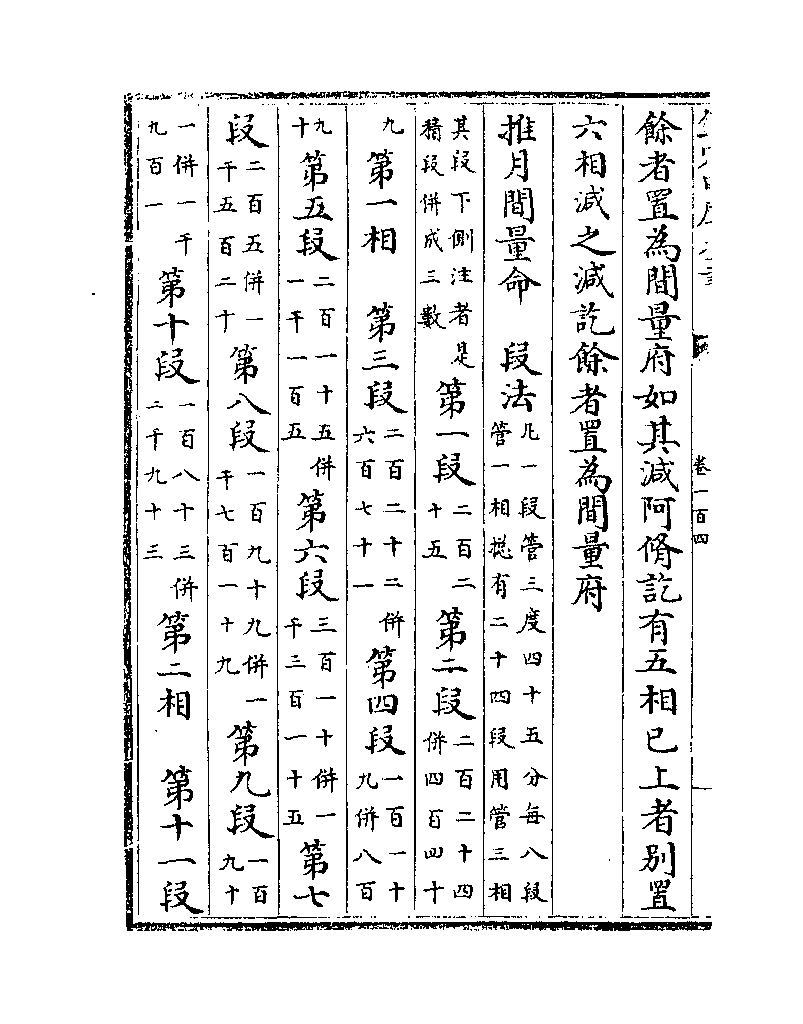 餘者置為間量府如其減阿脩訖有五相已上者別置
六相減之減訖餘者置為間量府
推月間量命　段法凡一段管三度四十五分每八段管一相摠有二十四段用管三相
其段下側注者是積段併成三數第一段二百二十五第二段二百二十四併四百四十
九第一相　第三段二百二十二併六百七十一第四段一百一十九併八百
九十第五段二百一十五併一千一百五第六段三百一十併一千三百一十五第七
段二百五併一千五百二十第八段一百九十九併一千七百一十九第九段一百九十
一併一千九百一第十段一百八十三併二千九十三第二相　第十一段
卷一百四